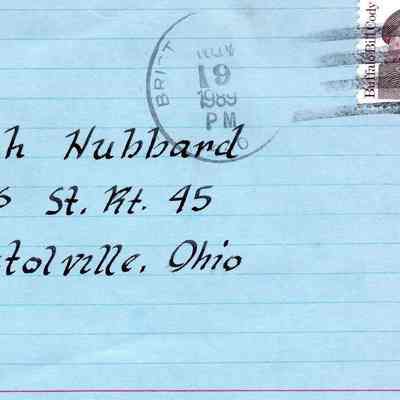 BRITT
19
1989
PM
Buffalo Bill Cody
h Hubbard
St. Rt. 45
tolville, Ohio